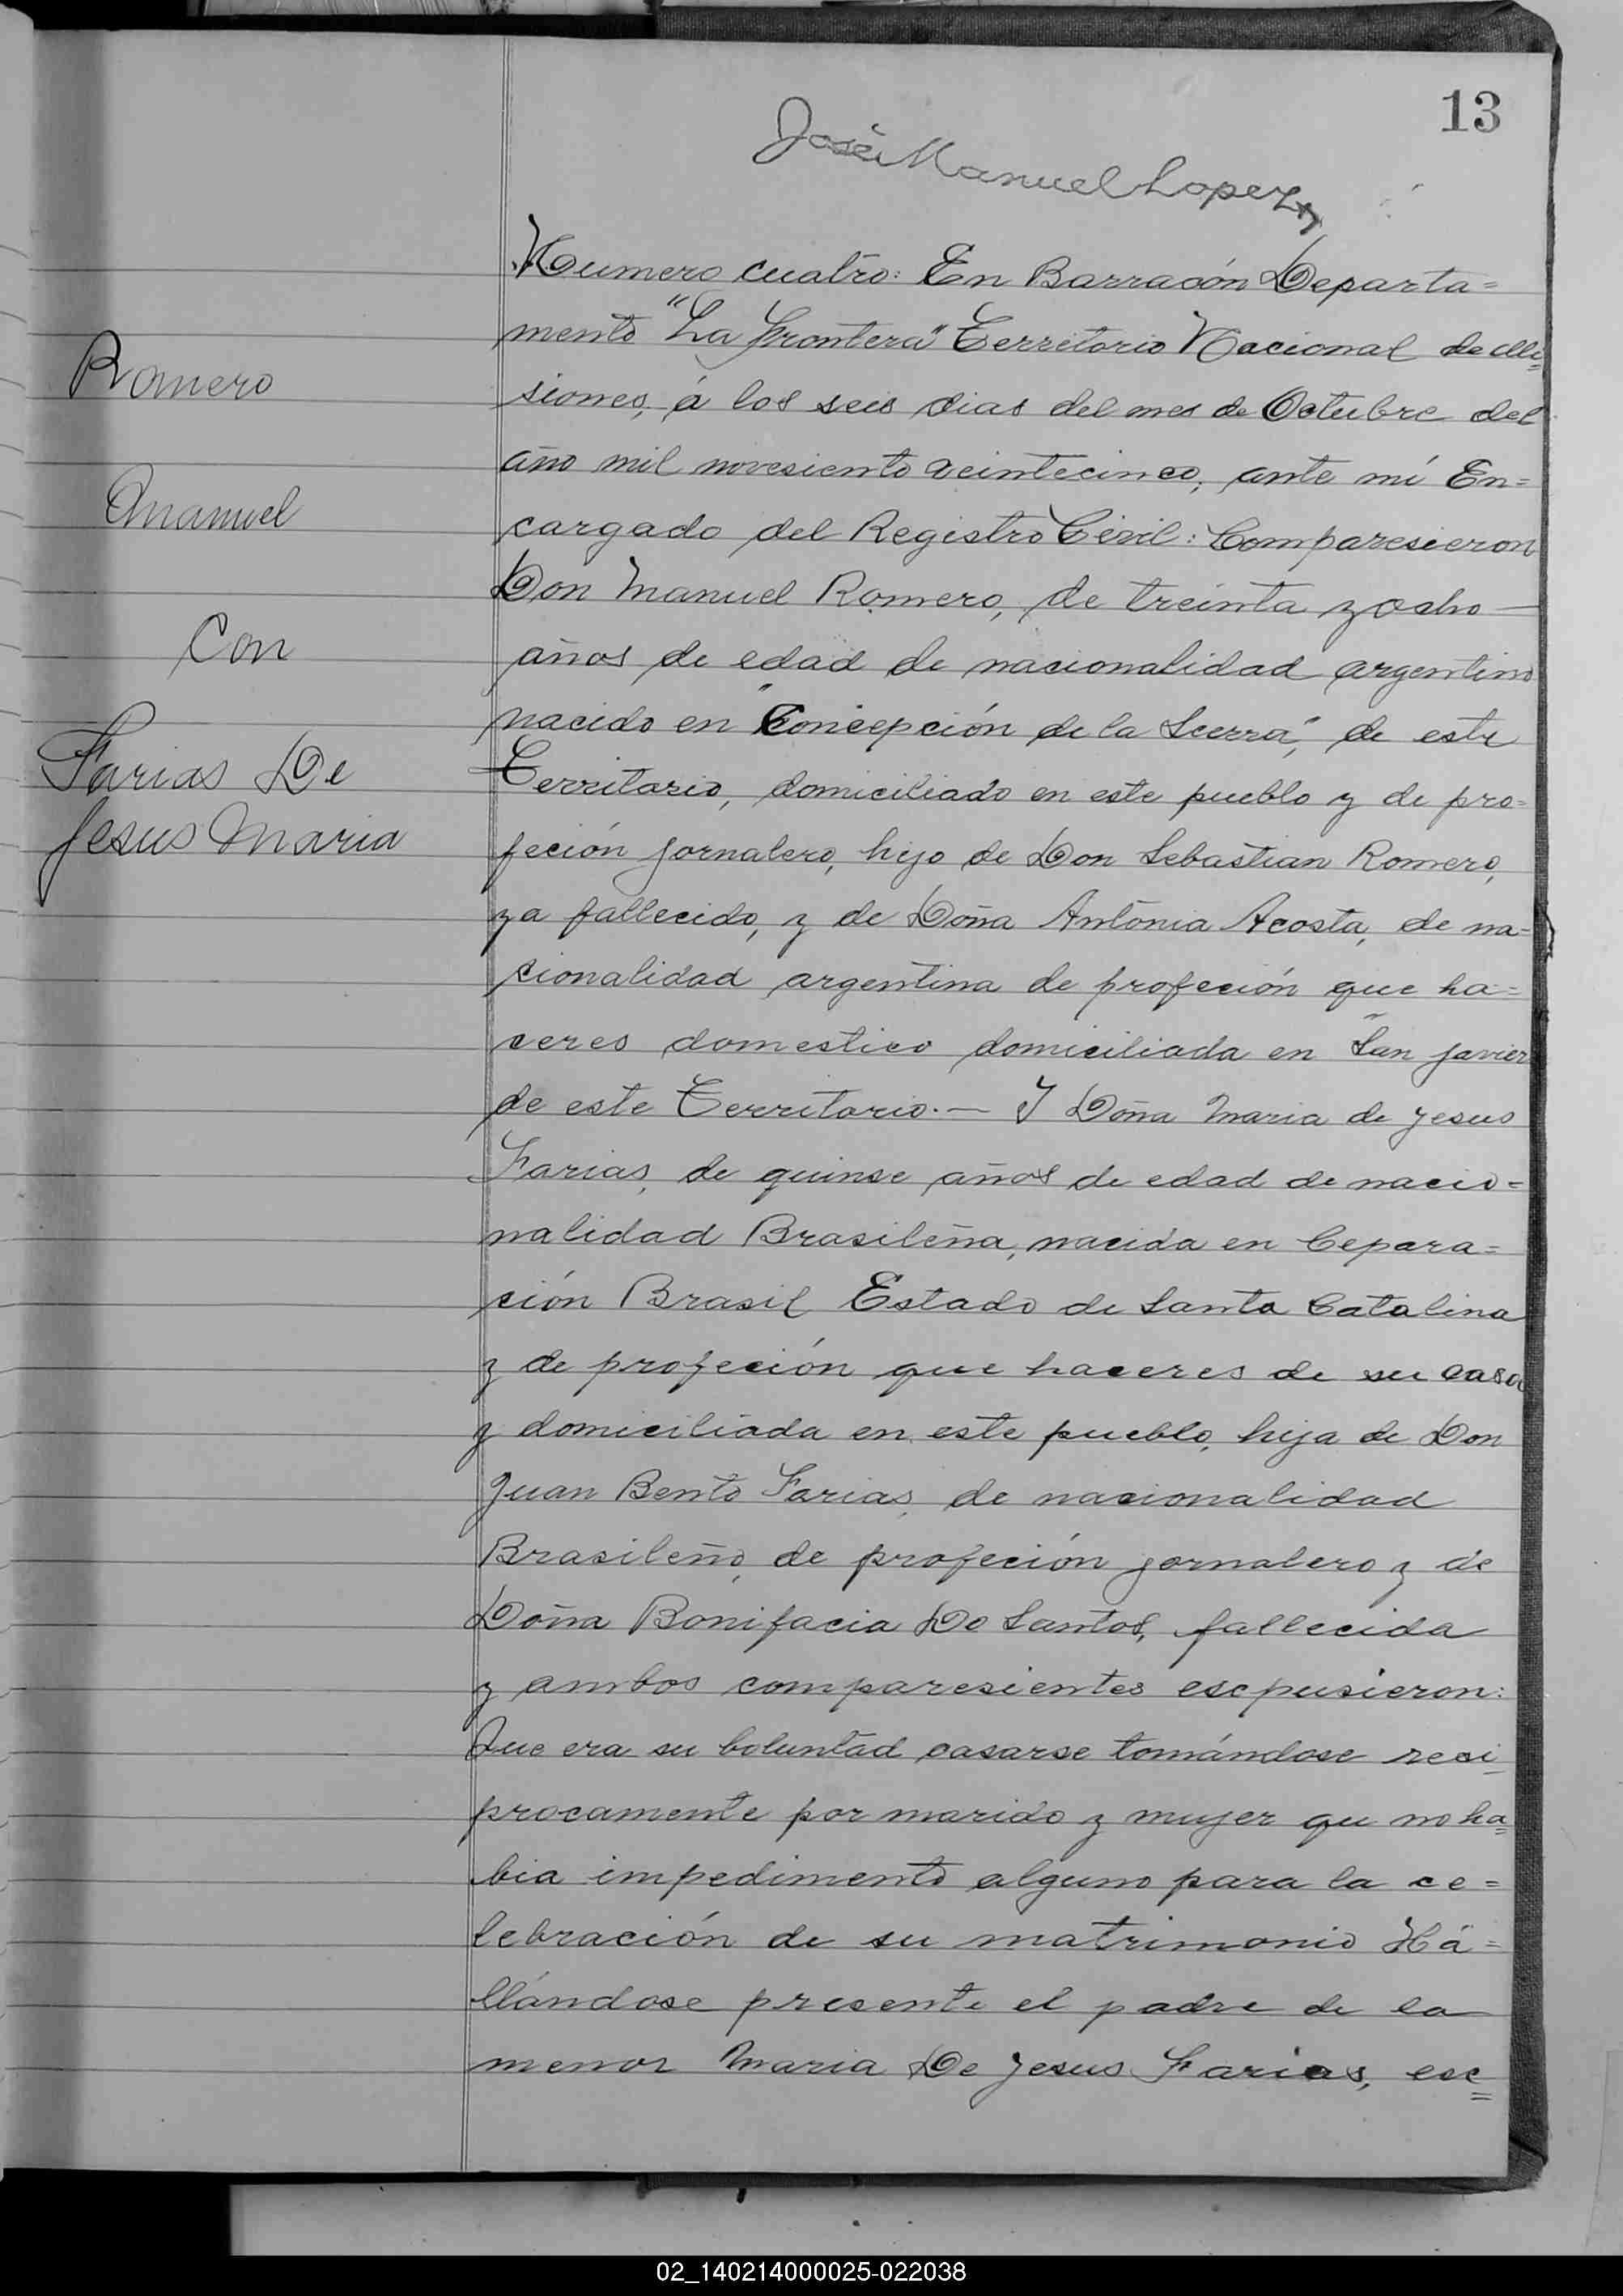 13
José Manuel Lopez
Numero cuatro: En Barracón Departa=
mento "La Frontera" Territorio Nacional de Mi=
siones, á los seis dias del mes de Octubre del
año mil novesiento veintecinco, ante mí En=
cargado del Registro Civil: Comparesieron
Don Manuel Romero, de treinta y ocho —
años de edad de nacionalidad argentino
nacido en "Concepción de la Scerra", de este
Territorio, domiciliado en este pueblo y de pro=
feción jornalero, hijo de Don Sebastian Romero,
ya fallecido, y de Doña Antonia Acosta, de na=
cionalidad argentina de profeción que ha=
ceres domestico domiciliada en "San Javier
de este Territorio.— I Doña Maria de Jesus
Farias, de quinse años de edad de nacio=
nalidad Brasileña, nacida en Cepara=
ción Brasil Estado de Santa Catalina
y de profeción que haceres de su casa
y domiciliada en este pueblo, hija de Don
Juan Bento Farias, de nacionalidad
Brasileño, de profeción jornalero y de
Doña Bonifacia Do Santos, fallecida
y ambos comparesientes escpusieron:
Que era su boluntad casarse tomándose reci=
procamente por marido y mujer qu no ha=
bia impedimento alguno para la ce=
lebración de su matrimonio Há=
llándose presente el padre de la
menor Maria De Jesus Farias, esc=
Romero
Manuel
Con
Farias De
Jesus Maria
02_140214000025-022038